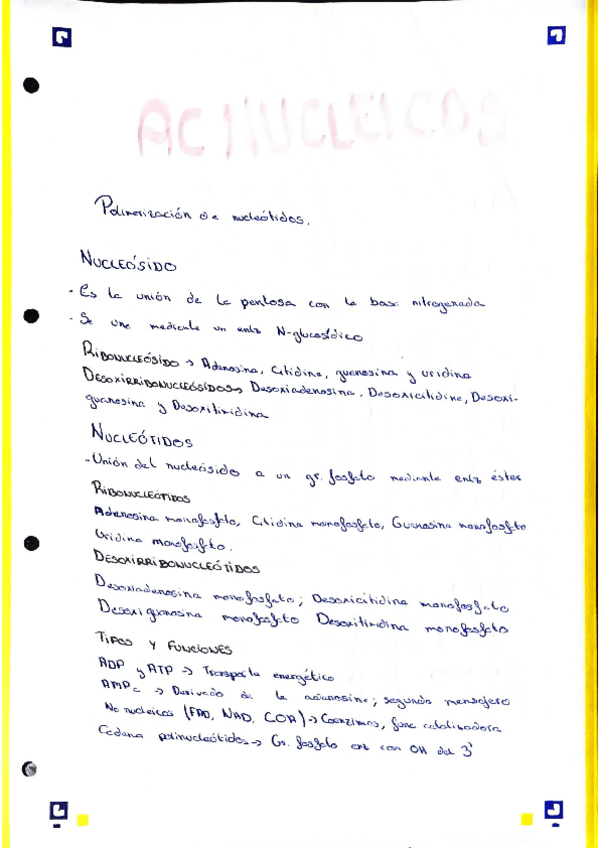 AC NUCLEICOS
Polimerización de nucleótidos.
NUCLEÓSIDO
- Es la unión de la pentosa con la base nitrogenada
- Se une mediante un enlz N-glucosídico
RIBONUCLEÓSIDO → Adenosina, Citidina, guanosina y uridina
DESOXIRRIBONUCLEÓSIDOS → Desoxiadenosina, Desoxicitidina, Desoxi-
guanosina y Desoxitimidina
NUCLEÓTIDOS
- Unión del nucleósido a un gr. fosfato mediante enlz éster
RIBONUCLEÓTIDOS
Adenosina monofosfato, Citidina monofosfato, Guanosina monofosfato
Uridina monofosfato.
DESOXIRRIBONUCLEÓTIDOS
Desoxiadenosina monofosfato; Desoxicitidina monofosfato
Desoxiguanosina monofosfato Desoxitimidina monofosfato
TIPOS Y FUNCIONES
ADP y ATP → Transporte energético
AMPc → Derivado de la adenosina; segundo mensajero
No nucleicos (FAD, NAD, COA) → Coenzimas, func catalizadora
Cadena polinucleótidos → Gr. fosfato enz con OH del 3'